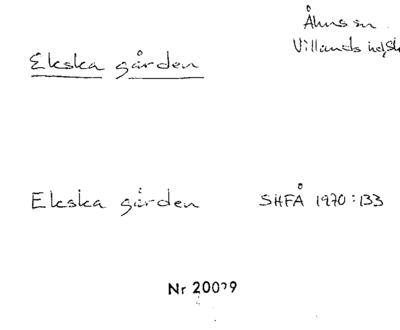 Åhus sn
Villands
Ekska gården
Ekska gården SHFÅ 1970:133
Nr